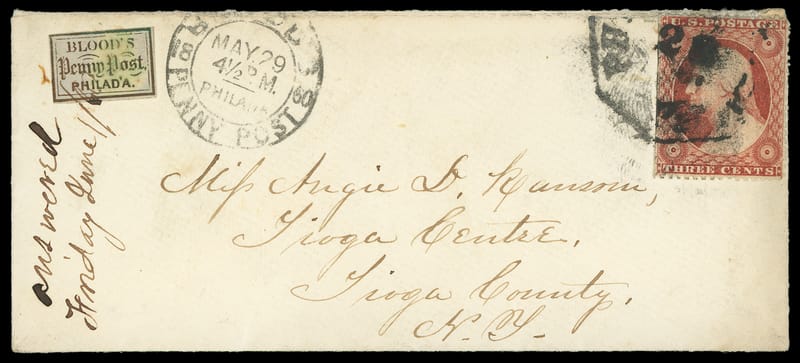 BLOOD'S
Penny Post,
PHILAD'A.
MAY 29
4½ P.M.
PHILADA
PENNY POST
U.S. POSTAGE
THREE CENTS
Miss Angie D. Ransom,
Tioga Centre,
Tioga County,
N.Y.
answered
Friday June 1/